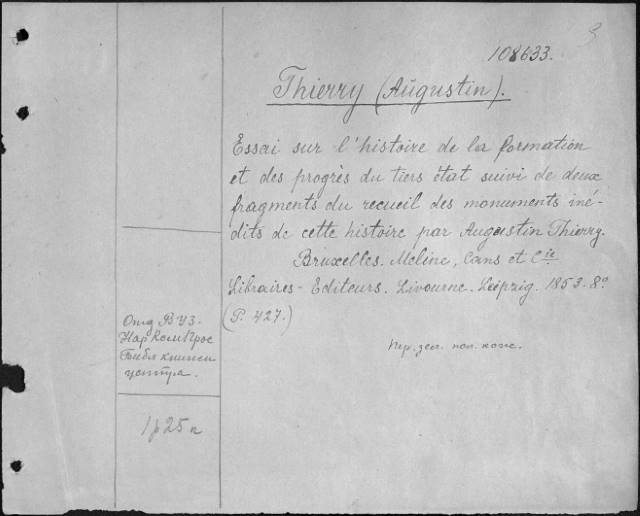 3
108633.
Thierry (Augustin).
Essai sur l'histoire de la formation
et des progrès du tiers état suivi de deux
fragments du recueil des monuments iné-
dits de cette histoire par Augustin Thierry.
Bruxelles. Meline, Cans et Cie
Libraires-Editeurs. Livourne. Leipzig. 1853. 8º
(P. 427.)
Отд ВУЗ.
НарКомПрос
Библ книжн
центра.
Пер. зел. пол. кож.
1р25к